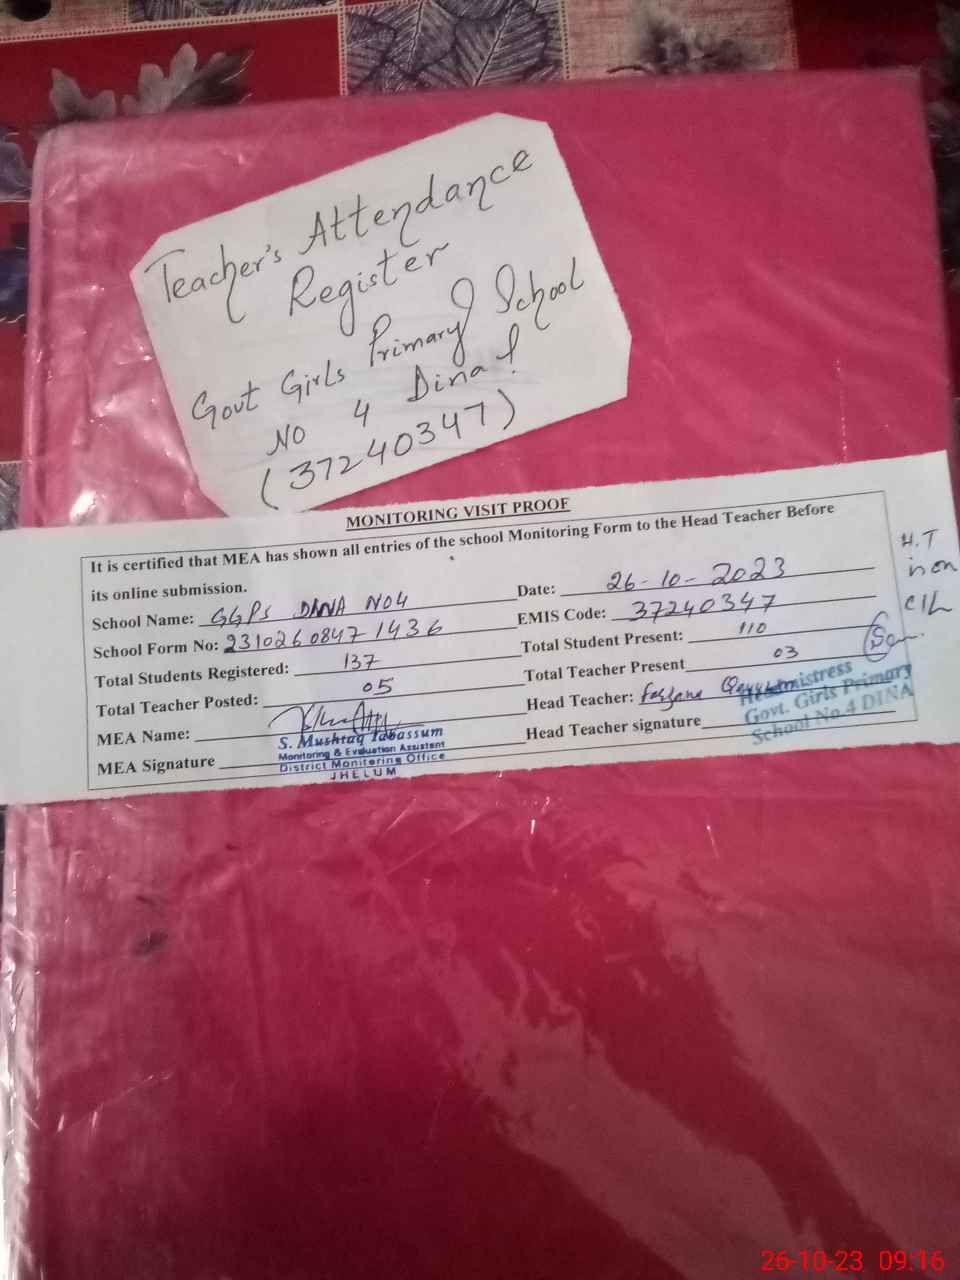 Teacher's Attendance
Register
Govt Girls Primary School
No 4 Dina
(37240347)
MONITORING VISIT PROOF
It is certified that MEA has shown all entries of the school Monitoring Form to the Head Teacher Before
its online submission.
School Name: GGPS DINA NO4 Date: 26-10-2023
School Form No: 23102608471436 EMIS Code: 37240347
Total Students Registered: 137 Total Student Present: 110
Total Teacher Posted: 05 Total Teacher Present 03
MEA Name: Head Teacher: Farzana
MEA Signature Head Teacher signature
S. Mushtaq Tabassum
Monitoring & Evaluation Assistant
District Monitoring Office
JHELUM
Headmistress
Govt. Girls Primary
School No.4 DINA
H.T
is on
C/L
26-10-23 09:16